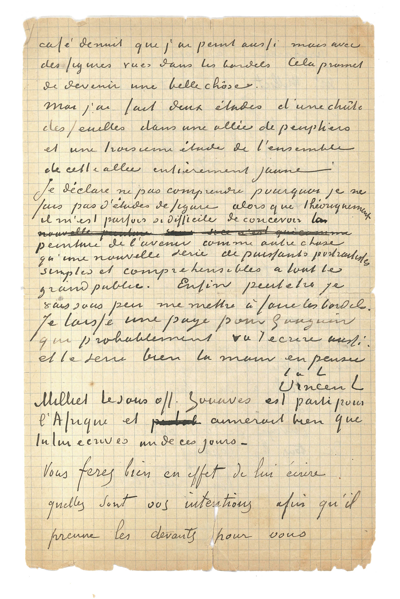 café de nuit que j'ai peint aussi mais avec
des figures vues dans les bordels. Cela promet
de devenir une belle chose.
moi j'ai fait deux études d'une chûte
des feuilles dans une allée de peupliers
et une troisieme étude de l'ensemble
de cette allee entièrement jaune
Je déclare ne pas comprendre pourquoi je ne
fais pas d'études de figure alors que théoriquement
il m'est parfois si difficile de concevoir la
peinture de l'avenir comme autre chose
qu'une nouvelle serie de puissants portraitistes
simples et comprehensibles à tout le
grand public. Enfin peut être je
vais sous peu me mettre à faire les bordels.
Je laisse une page pour Gauguin
qui probablement va t'ecrire aussi
et te serre bien la main en pensée
t. à t.
Vincent
Milliet le sous off. Zouaves est parti pour
l'Afrique et aimerait bien que
tu lui ecrives un de ces jours –
Vous ferez bien en effet de lui écrire
quelles sont vos intentions afin qu'il
prenne les devants pour vous